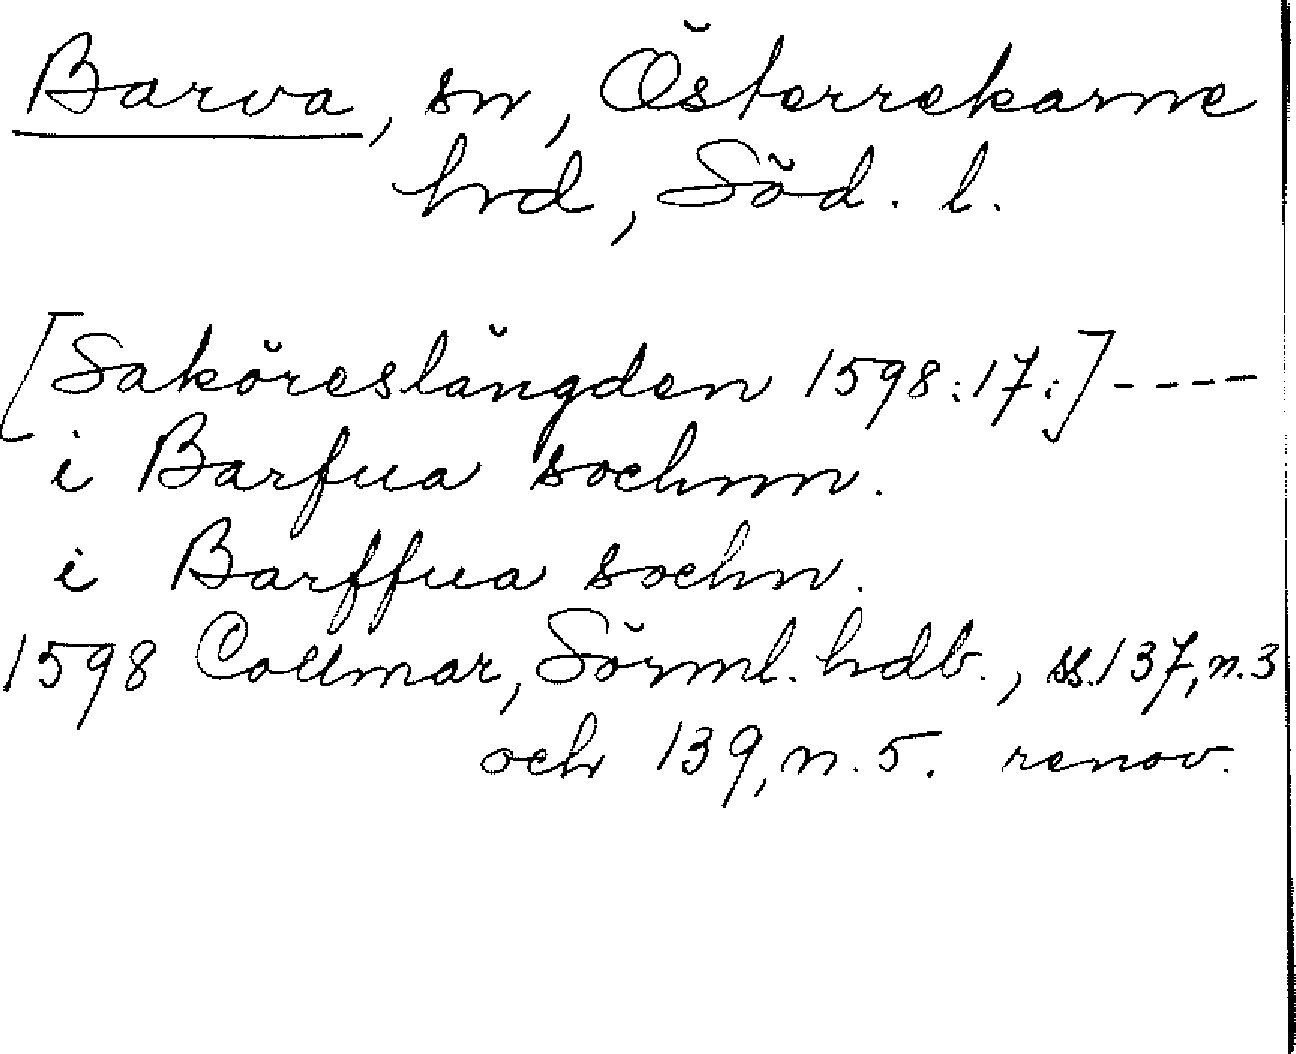 Barva, sn, Österrekarne
hrd, Söd. l.
[Saköreslängden 1598:17:] ----
i Barfua sochnn.
i Barffua sochn.
1598 Collmar, Sörml. hdb., ss. 137, n. 3
och 139, n. 5. renov.